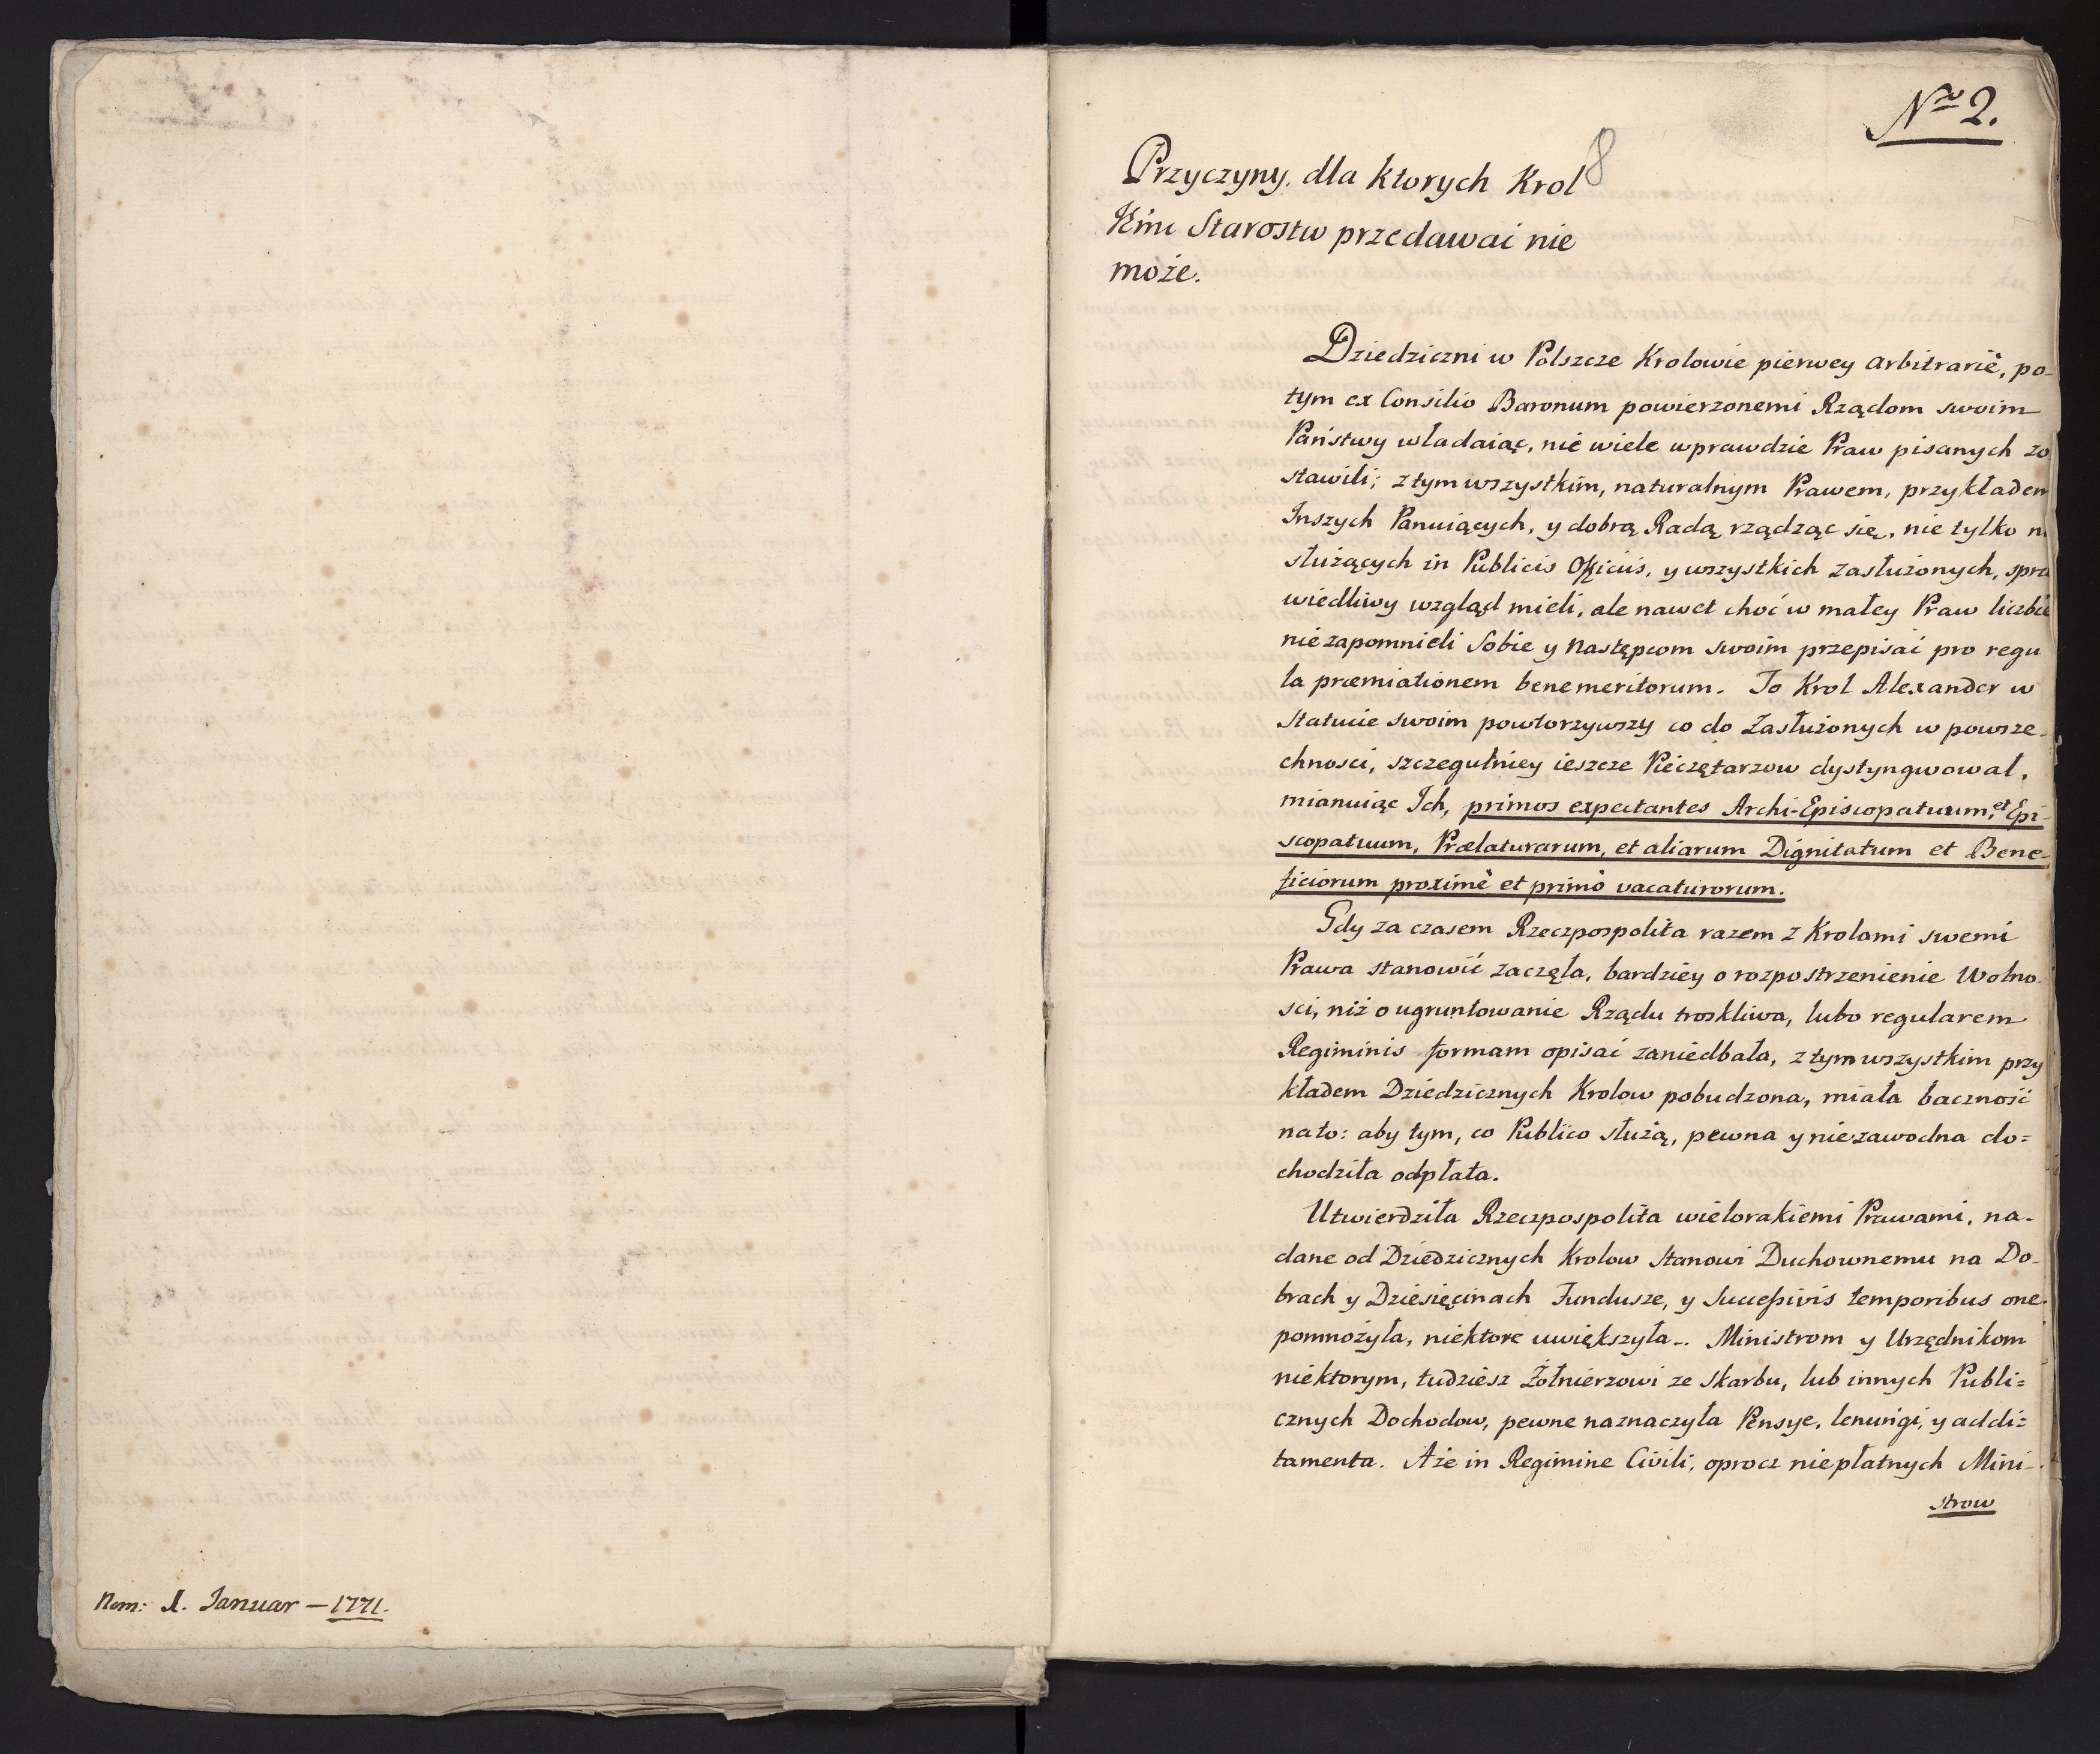 Nom: 1. Januar — 1771.
Nro 2.
8
Przyczyny, dla ktorych Krol
Jmć Starostw przedawać nie
może.
Dziedziczni w Polszcze Krolowie pierwey arbitrariè, po-
tym ex Consilio Baronum powierzonemi Rządom swoim
Państwy władaiąc, nie wiele wprawdzie Praw pisanych zo
stawili; z tym wszystkim, naturalnym Prawem, przykładem
Inszych Panuiących, y dobrą Radą rządząc się, nie tylko na
służących in Publicis Officiis, y wszystkich zasłużonych, spra
wiedliwy wzgląd mieli, ale nawet choć w małey Praw liczbie
nie zapomnieli Sobie y Następcom swoim przepisać pro regu
la præmiationem benemeritorum. To Krol Alexander w
Statucie swoim powtorzywszy co do Zasłużonych w powsze-
chnosci, szczegulniey ieszcze Pieczętarzow dystyngwował,
mianuiąc Ich, primos expectantes Archi-Episcopatuum, et Epi-
scopatuum, Prælaturarum, et aliarum Dignitatum et Bene-
ficiorum proximè et primò vacaturorum.
Gdy za czasem Rzeczpospolita razem z Krolami swemi
Prawa stanowić zaczęła, bardziey o rozpostrzenienie Wolno-
sci, niż o ugruntowanie Rządu troskliwa, lubo regularem
Regiminis formam opisać zaniedbała, z tym wszystkim przy
kładem Dziedzicznych Krolow pobudzona, miała baczność
na to: aby tym, co Publico służą, pewna y niezawodna do=
chodziła odpłata.
Utwierdziła Rzeczpospolita wielorakiemi Prawami, na-
dane od Dziedzicznych Krolow Stanowi Duchownemu na Do-
brach y Dziesięcinach Fundusze, y Successivis temporibus one
pomnożyła, niektore uwiększyła.. Ministrom y Urzędnikom
niektorym, tudziesz Żołnierzowi ze Skarbu, lub innych Publi=
cznych Dochodow, pewne naznaczyła Pensye, lenungi, y addi=
tamenta. Aże in Regimine Civili, oprocz niepłatnych Mini-
strow